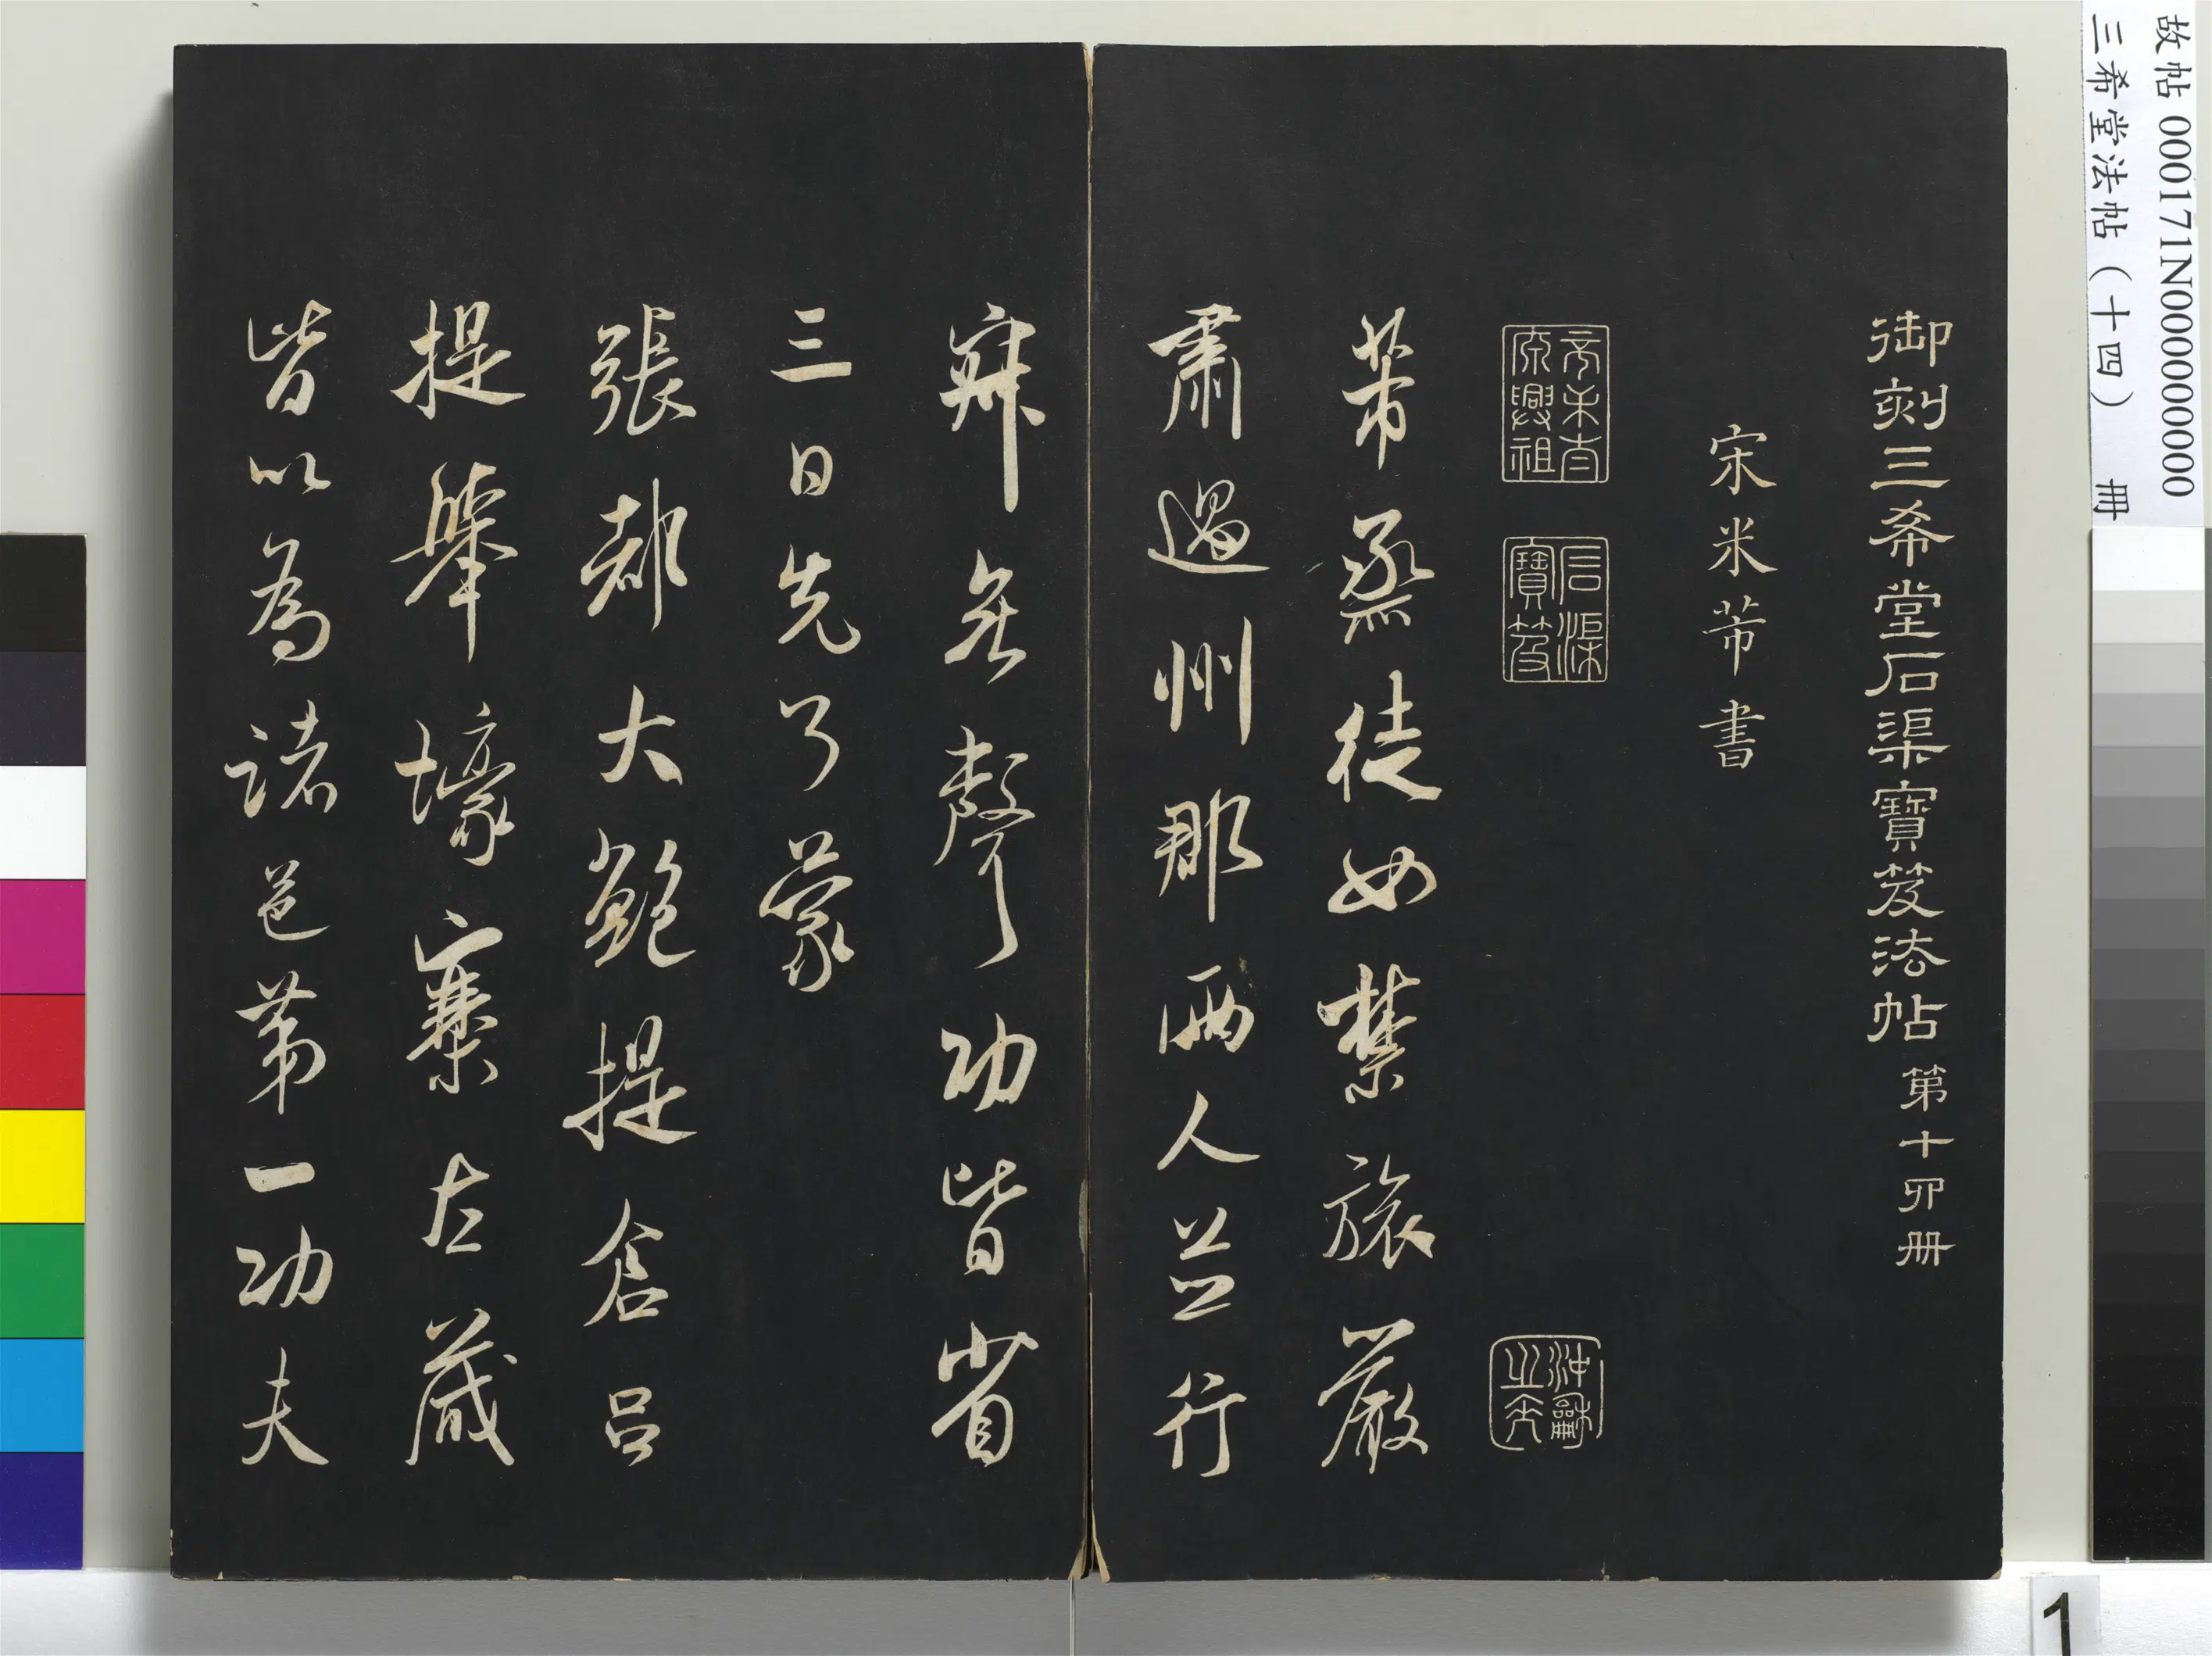 故帖 000171N000000000
三希堂法帖（十四） 冊
御刻三希堂石渠寶笈法帖 第十四冊
宋米芾書
石渠寶笈
芾烝徒如禁旅嚴
肅過州郡兩人並行
寂無聲功皆省
三日先了蒙
張都大鮑提倉呂
提舉壕寨左藏
皆以為諸邑第一功夫
1